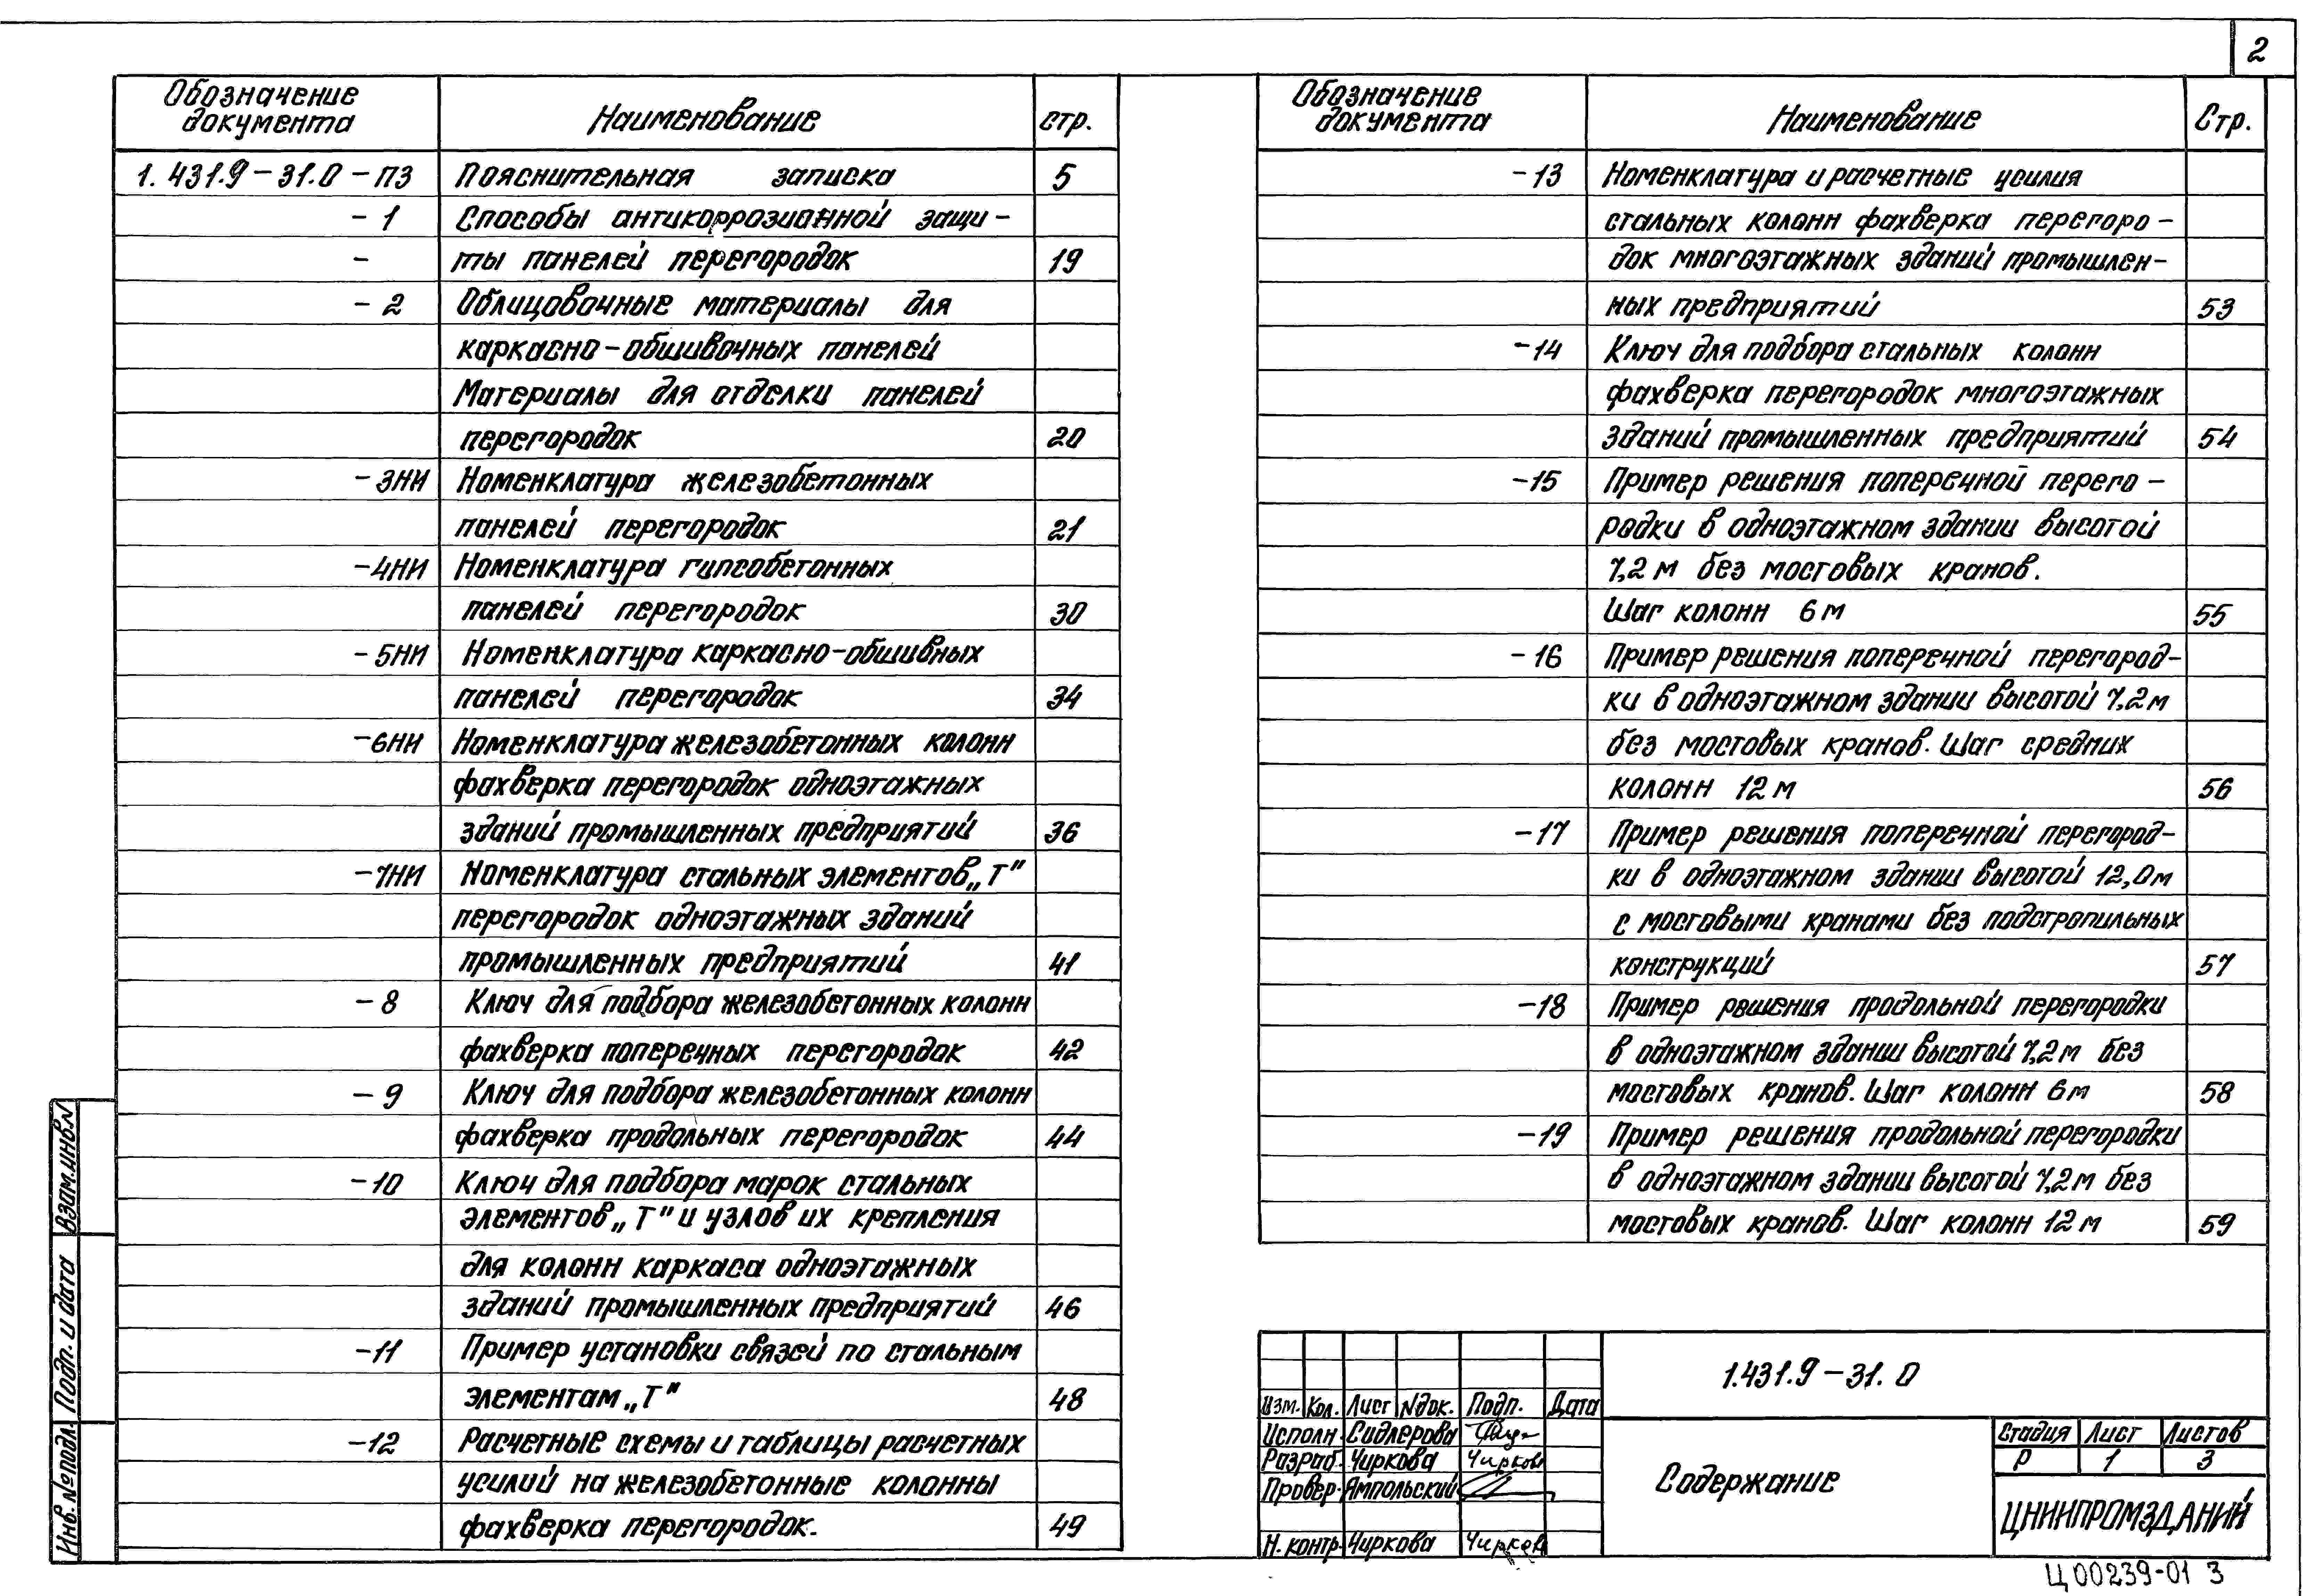 2
Обозначение документа Наименование стр.
1.431.9-31.0-ПЗ Пояснительная записка 5
-1 Способы антикоррозианной защи-
- ты панелей перегородок 19
-2 Облицовочные материалы для
каркасно-обшивочных панелей
Материалы для отделки панелей
перегородок 20
-3НИ Номенклатура железобетонных
панелей перегородок 21
-4НИ Номенклатура гипсобетонных
панелей перегородок 30
-5НИ Номенклатура каркасно-обшивных
панелей перегородок 34
-6НИ Номенклатура железобетонных колонн
фахверка перегородок одноэтажных
зданий промышленных предприятий 36
-7НИ Номенклатура стальных элементов „Т"
перегородок одноэтажных зданий
промышленных предприятий 41
-8 Ключ для подбора железобетонных колонн
фахверка поперечных перегородок 42
-9 Ключ для подбора железобетонных колонн
фахверка продольных перегородок 44
-10 Ключ для подбора марок стальных
элементов „Т" и узлов их крепления
для колонн каркаса одноэтажных
зданий промышленных предприятий 46
-11 Пример установки связей по стальным
элементам „Т" 48
-12 Расчетные схемы и таблицы расчетных
усилий на железобетонные колонны
фахверка перегородок. 49
Обозначение документа Наименование Стр.
-13 Номенклатура и расчетные усилия
стальных колонн фахверка перегоро-
док многоэтажных зданий промышлен-
ных предприятий 53
-14 Ключ для подбора стальных колонн
фахверка перегородок многоэтажных
зданий промышленных предприятий 54
-15 Пример решения поперечной перего-
родки в одноэтажном здании высотой
7,2 м без мостовых кранов.
Шаг колонн 6 м 55
-16 Пример решения поперечной перегород-
ки в одноэтажном здании высотой 7,2 м
без мостовых кранов. Шаг средних
колонн 12 м 56
-17 Пример решения поперечной перегород-
ки в одноэтажном здании высотой 12,0 м
с мостовыми кранами без подстропильных
конструкций 57
-18 Пример решения продольной перегородки
в одноэтажном здании высотой 7,2 м без
мостовых кранов. Шаг колонн 6 м 58
-19 Пример решения продольной перегородки
в одноэтажном здании высотой 7,2 м без
мостовых кранов. Шаг колонн 12 м 59
Взам.инв.N
Подп. и дата
Инв. № подл.
1.431.9-31.0
Изм. Кол. Лист Nдок. Подп. Дата
Исполн. Сидлерова
Разраб. Чиркова Чирков
Провер. Ямпольский
Н. контр. Чиркова Чирков
Содержание
Стадия Лист Листов
Р 1 3
ЦНИИПРОМЗДАНИЙ
Ц00239-01 3